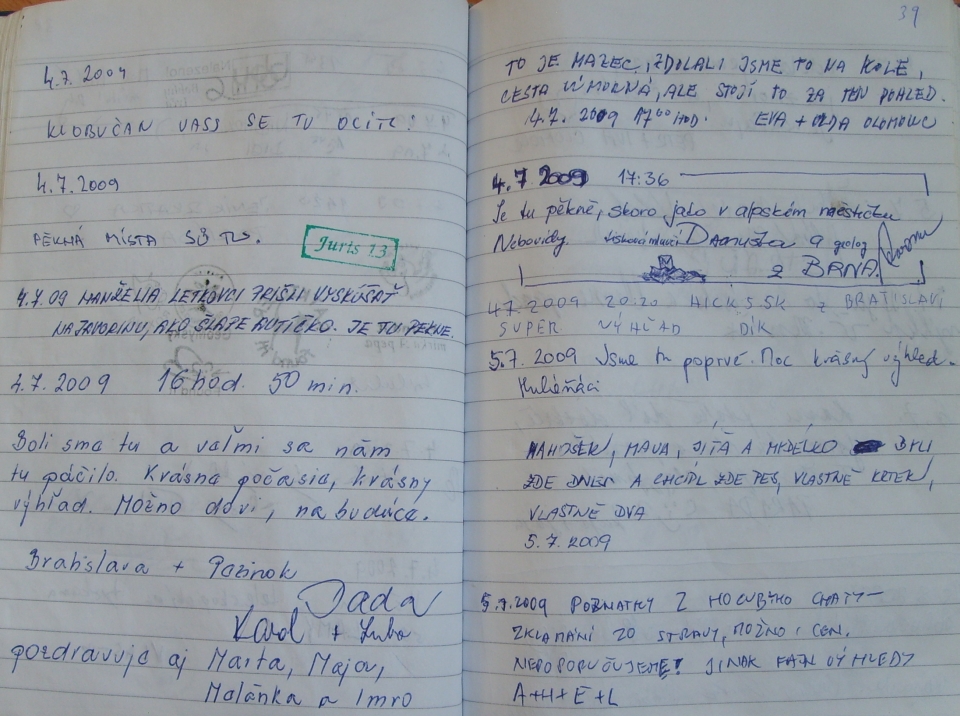 4.7. 2009
KLOBUČAN VASS SE TU OCITL!
4.7.2009
PĚKNÁ MÍSTA
Juris 13
4.7.09 MANŽELIA LETKOVCI PRIŠLI VYSKÚŠAŤ
NAJRODINU, AKO ŠLAPE AUTÍČKO. JE TU PEKNE.
4.7.2009 16 hod. 50 min.
Boli sme tu a vaľmi sa nám
tu páčilo. Krásne počasie, krásny
výhľad. Možno dovi, nabudúce.
Bratislava + Pezinok
Dada
Karol + Ľubo
pozdravuje aj Marta, Majo,
Malánka a Imro
39
TO JE MAZEC, ZDOLALI JSME TO NA KOLE,
CESTA ÚMORNÁ, ALE STOJÍ TO ZA TEN POHLED.
4.7. 2009 17⁰⁰ HOD. EVA + OLDA OLOMOUC
4.7 2009 17:36
Je tu pěkně, skoro jako v alpském městečku
Nebovidy. Danuška a geolog
z BRNA.
4.7.2009 20.20 HICK S SK z BRATISLAVI
SUPER VÝHĽAD DÍK
5.7. 2009 Jsme tu poprvé. Moc krásný výhled.
Hulíňáci
MAVA, JÍŤA A BYLI
ZDE DNES A CHCÍPL ZDE PES, VLASTNĚ KOTEK,
VLASTNĚ DVA
5.7.2009
5.7.2009 POZNATKY Z HOLUBYHO CHATY –
ZKLAMÁNÍ ZO STRAVY, MOŽNO I CEN.
NEDOPORUČUJEME! JINAK FAJN VÝHLEDY
A+H+E+L